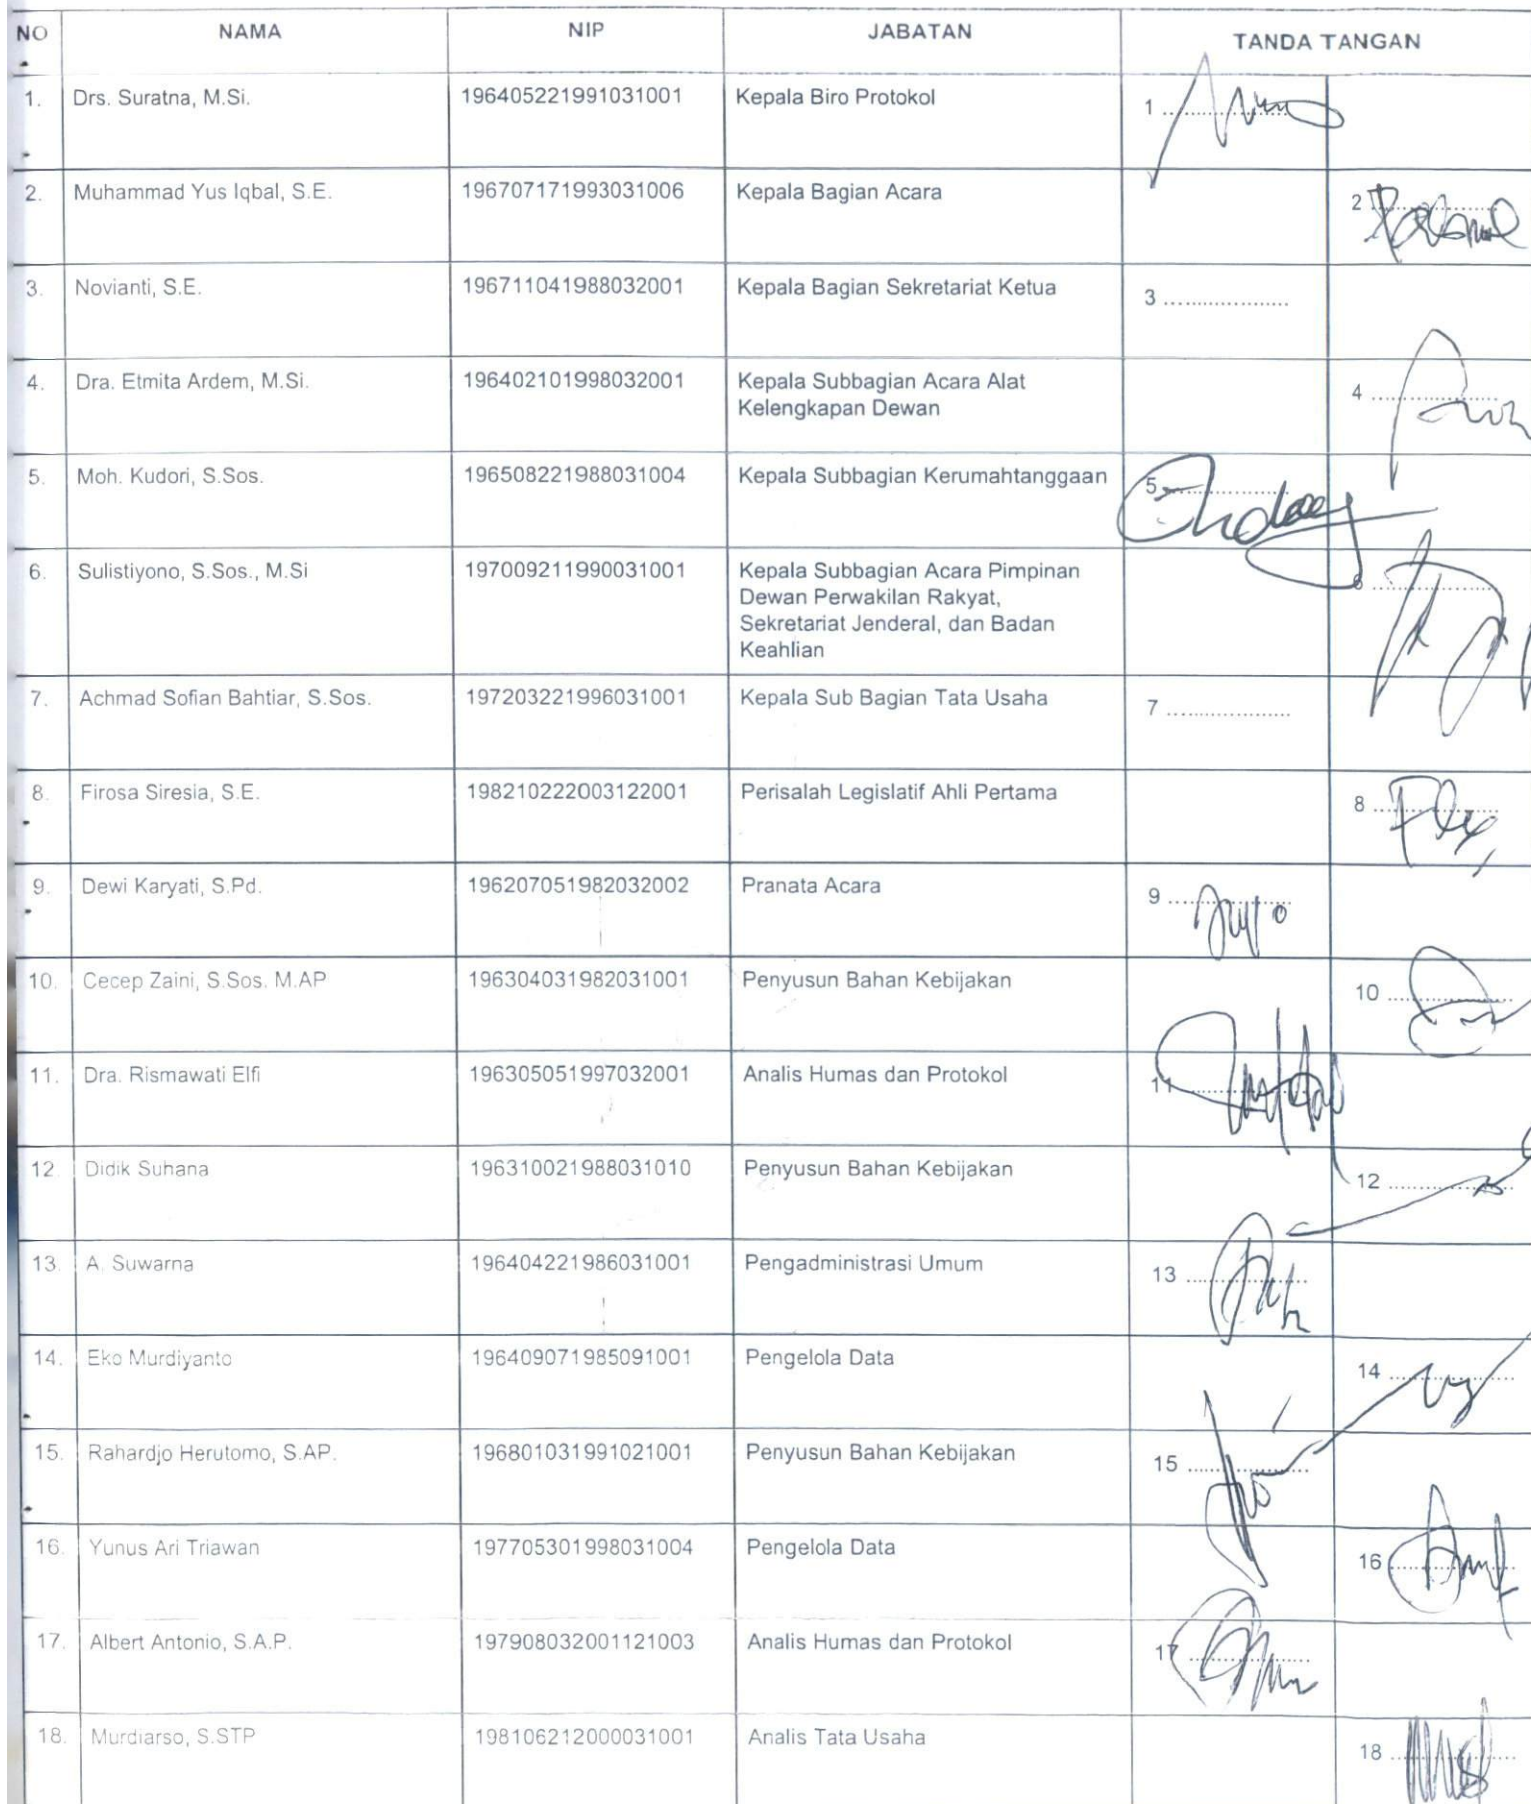 NO NAMA NIP JABATAN TANDA TANGAN
1. Drs. Suratna, M.Si. 196405221991031001 Kepala Biro Protokol 1 ........
2. Muhammad Yus Iqbal, S.E. 196707171993031006 Kepala Bagian Acara 2 ........
3. Novianti, S.E. 196711041988032001 Kepala Bagian Sekretariat Ketua 3 ...................
4. Dra. Etmita Ardem, M.Si. 196402101998032001 Kepala Subbagian Acara Alat 4 ........
Kelengkapan Dewan
5. Moh. Kudori, S.Sos. 196508221988031004 Kepala Subbagian Kerumahtanggaan 5 ........
6. Sulistiyono, S.Sos., M.Si 197009211990031001 Kepala Subbagian Acara Pimpinan 6 ........
Dewan Perwakilan Rakyat,
Sekretariat Jenderal, dan Badan
Keahlian
7. Achmad Sofian Bahtiar, S.Sos. 197203221996031001 Kepala Sub Bagian Tata Usaha 7 ...................
8. Firosa Siresia, S.E. 198210222003122001 Perisalah Legislatif Ahli Pertama 8 ........
9. Dewi Karyati, S.Pd. 196207051982032002 Pranata Acara 9 ........
10. Cecep Zaini, S.Sos. M.AP 196304031982031001 Penyusun Bahan Kebijakan 10 ........
11. Dra. Rismawati Elfi 196305051997032001 Analis Humas dan Protokol 11 ........
12. Didik Suhana 196310021988031010 Penyusun Bahan Kebijakan 12 ........
13. A. Suwarna 196404221986031001 Pengadministrasi Umum 13 ........
14. Eko Murdiyanto 196409071985091001 Pengelola Data 14 ........
15. Rahardjo Herutomo, S.AP. 196801031991021001 Penyusun Bahan Kebijakan 15 ........
16. Yunus Ari Triawan 197705301998031004 Pengelola Data 16 ........
17. Albert Antonio, S.A.P. 197908032001121003 Analis Humas dan Protokol 17 ........
18. Murdiarso, S.STP 198106212000031001 Analis Tata Usaha 18 ........